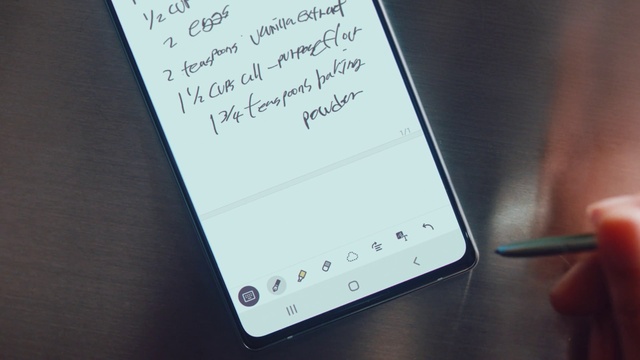 1/2 cup
2 eggs
2 teaspoons vanilla extract
1 1/2 cups all-purpose flour
1 3/4 teaspoons baking
powder
1/1